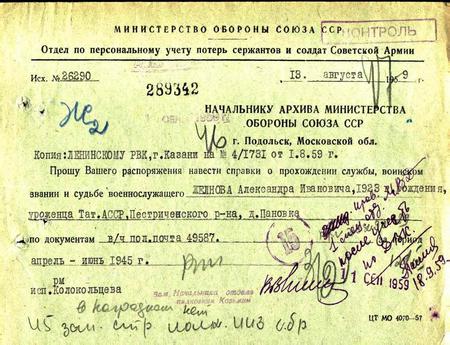 МИНИСТЕРСТВО ОБОРОНЫ СОЮЗА ССР
КОНТРОЛЬ
Отдел по персональному учету потерь сержантов и солдат Советской Армии
Исх. № 26290
13. августа 1959 г.
289342
НАЧАЛЬНИКУ АРХИВА МИНИСТЕРСТВА
ОБОРОНЫ СОЮЗА ССР
г. Подольск, Московской обл.
Копия: ЛЕНИНСКОМУ РВК, г. Казани на № 4/1731 от 1.8.59 г.
Прошу Вашего распоряжения навести справки о прохождении службы, воинском
звании и судьбе военнослужащего ЛЕЖНОВА Александра Ивановича, 1923 рождения,
уроженца Тат.АССР, Пестричинского р-на, д.Пановка
по документам в/ч пол.почта 49587.
апрель - июнь 1945 г)
15
после
1 СЕН 1959
18.9.59
рм
исп. Колокольцева
Зам. Начальника отдела
полковник
в наградном нет
115 зам. стр.
ЦТ МО 4070-57